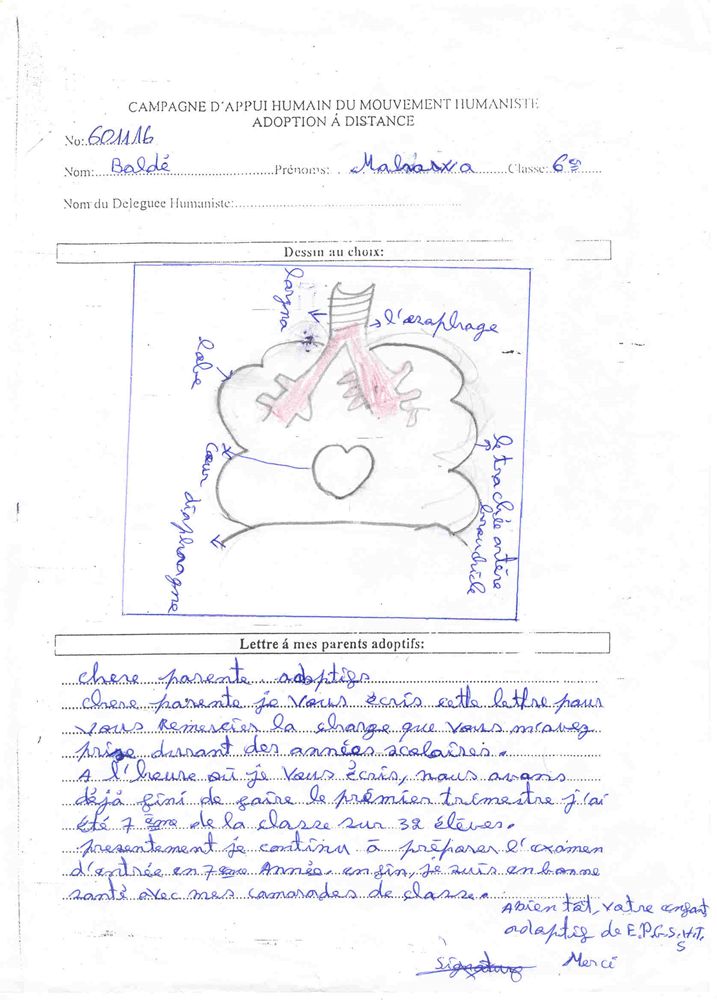 CAMPAGNE D'APPUI HUMAIN DU MOUVEMENT HUMANISTE
ADOPTION Á DISTANCE
No: 601116
Nom: Baldé Prénoms: Classe: 6e
Nom du Deleguee Humaniste:
Dessin au choix:
larynx
l'œsaphage
lobe
Cœur
diaphragne
le trachée artère
Lettre á mes parents adoptifs:
chere parente adoptifs
chere parente je vous écris cette lettre pour
vous Remercier la charge que vous m'avez
prise durant des années scolaires.
A l'heure où je vous écris, nous avons
déjà fini de faire le prémier trimestre j'ai
été 7ème de la classe sur 32 élèves.
presentement je continu à préparer l'examen
d'entrée en 7ème Année. en fin, je suis en bonne
santé avec mes camarades de classe.
Abien tôt, votre enfant
adoptif de E.P.G.S.H.T.
S
Signature Merci